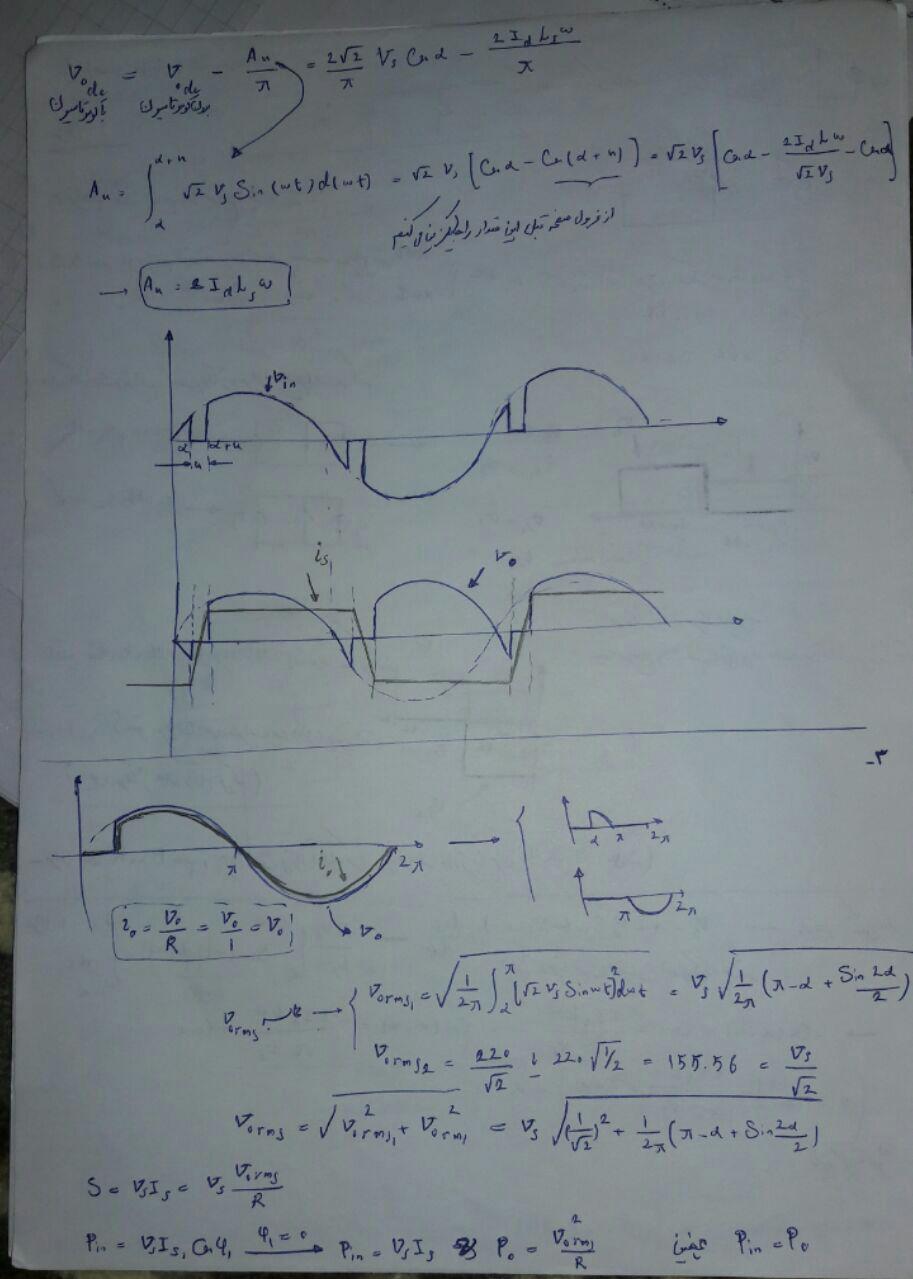 V₀dc = V₀dc − Au/π = 2√2/π Vs Cosα − 2IdLsω/π
باکوموتاسیون بدون کوموتاسیون
Au = ∫_α^{α+u} √2 Vs Sin(ωt)d(ωt) = √2 Vs [Cosα − Cos(α+u)] = √2 Vs [Cosα − 2IdLsω/√2Vs − Cosα]
از فرمول صفحه قبل این مقدار را جایگزین می کنیم
→ Au = 2IdLsω
Vin
α α+u
u
is
v₀
۳-
π 2π
i₀
v₀
α π 2π
π 2π
i₀ = V₀/R = V₀/1 = V₀
V₀rms محاسبه → { V₀rms₁ = √(1/2π ∫_α^π [√2 Vs Sinωt]² dωt) = Vs √(1/2π (π−α + Sin2α/2))
V₀rms₂ = 220/√2 یا 220 √1/2 = 155.56 = Vs/√2
V₀rms = √(V₀rms₁² + V₀rms₁²) = Vs √((1/√2)² + 1/2π (π−α + Sin2α/2))
S = VsIs = Vs V₀rms/R
Pin = VsIs₁Cosφ₁ φ₁=0 → Pin = VsIs P₀ = V₀rms²/R همچنین Pin = P₀